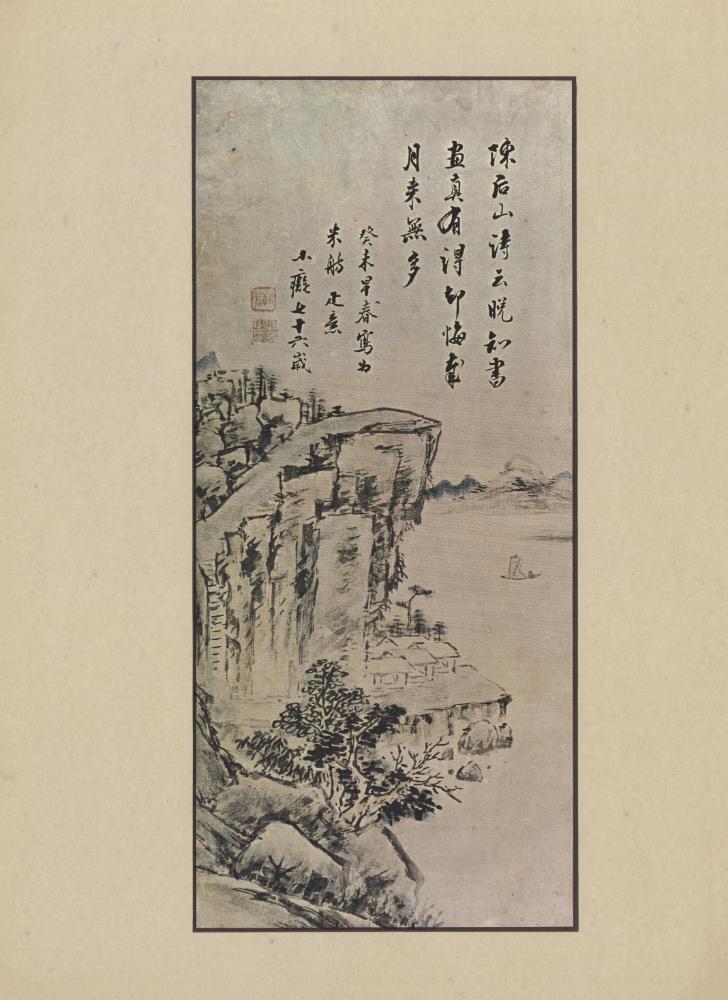 陳后山詩云晩知書
畫真有得却悔歲
月来無多
癸未早春寫為
米舫疋意
小癡七十六歲